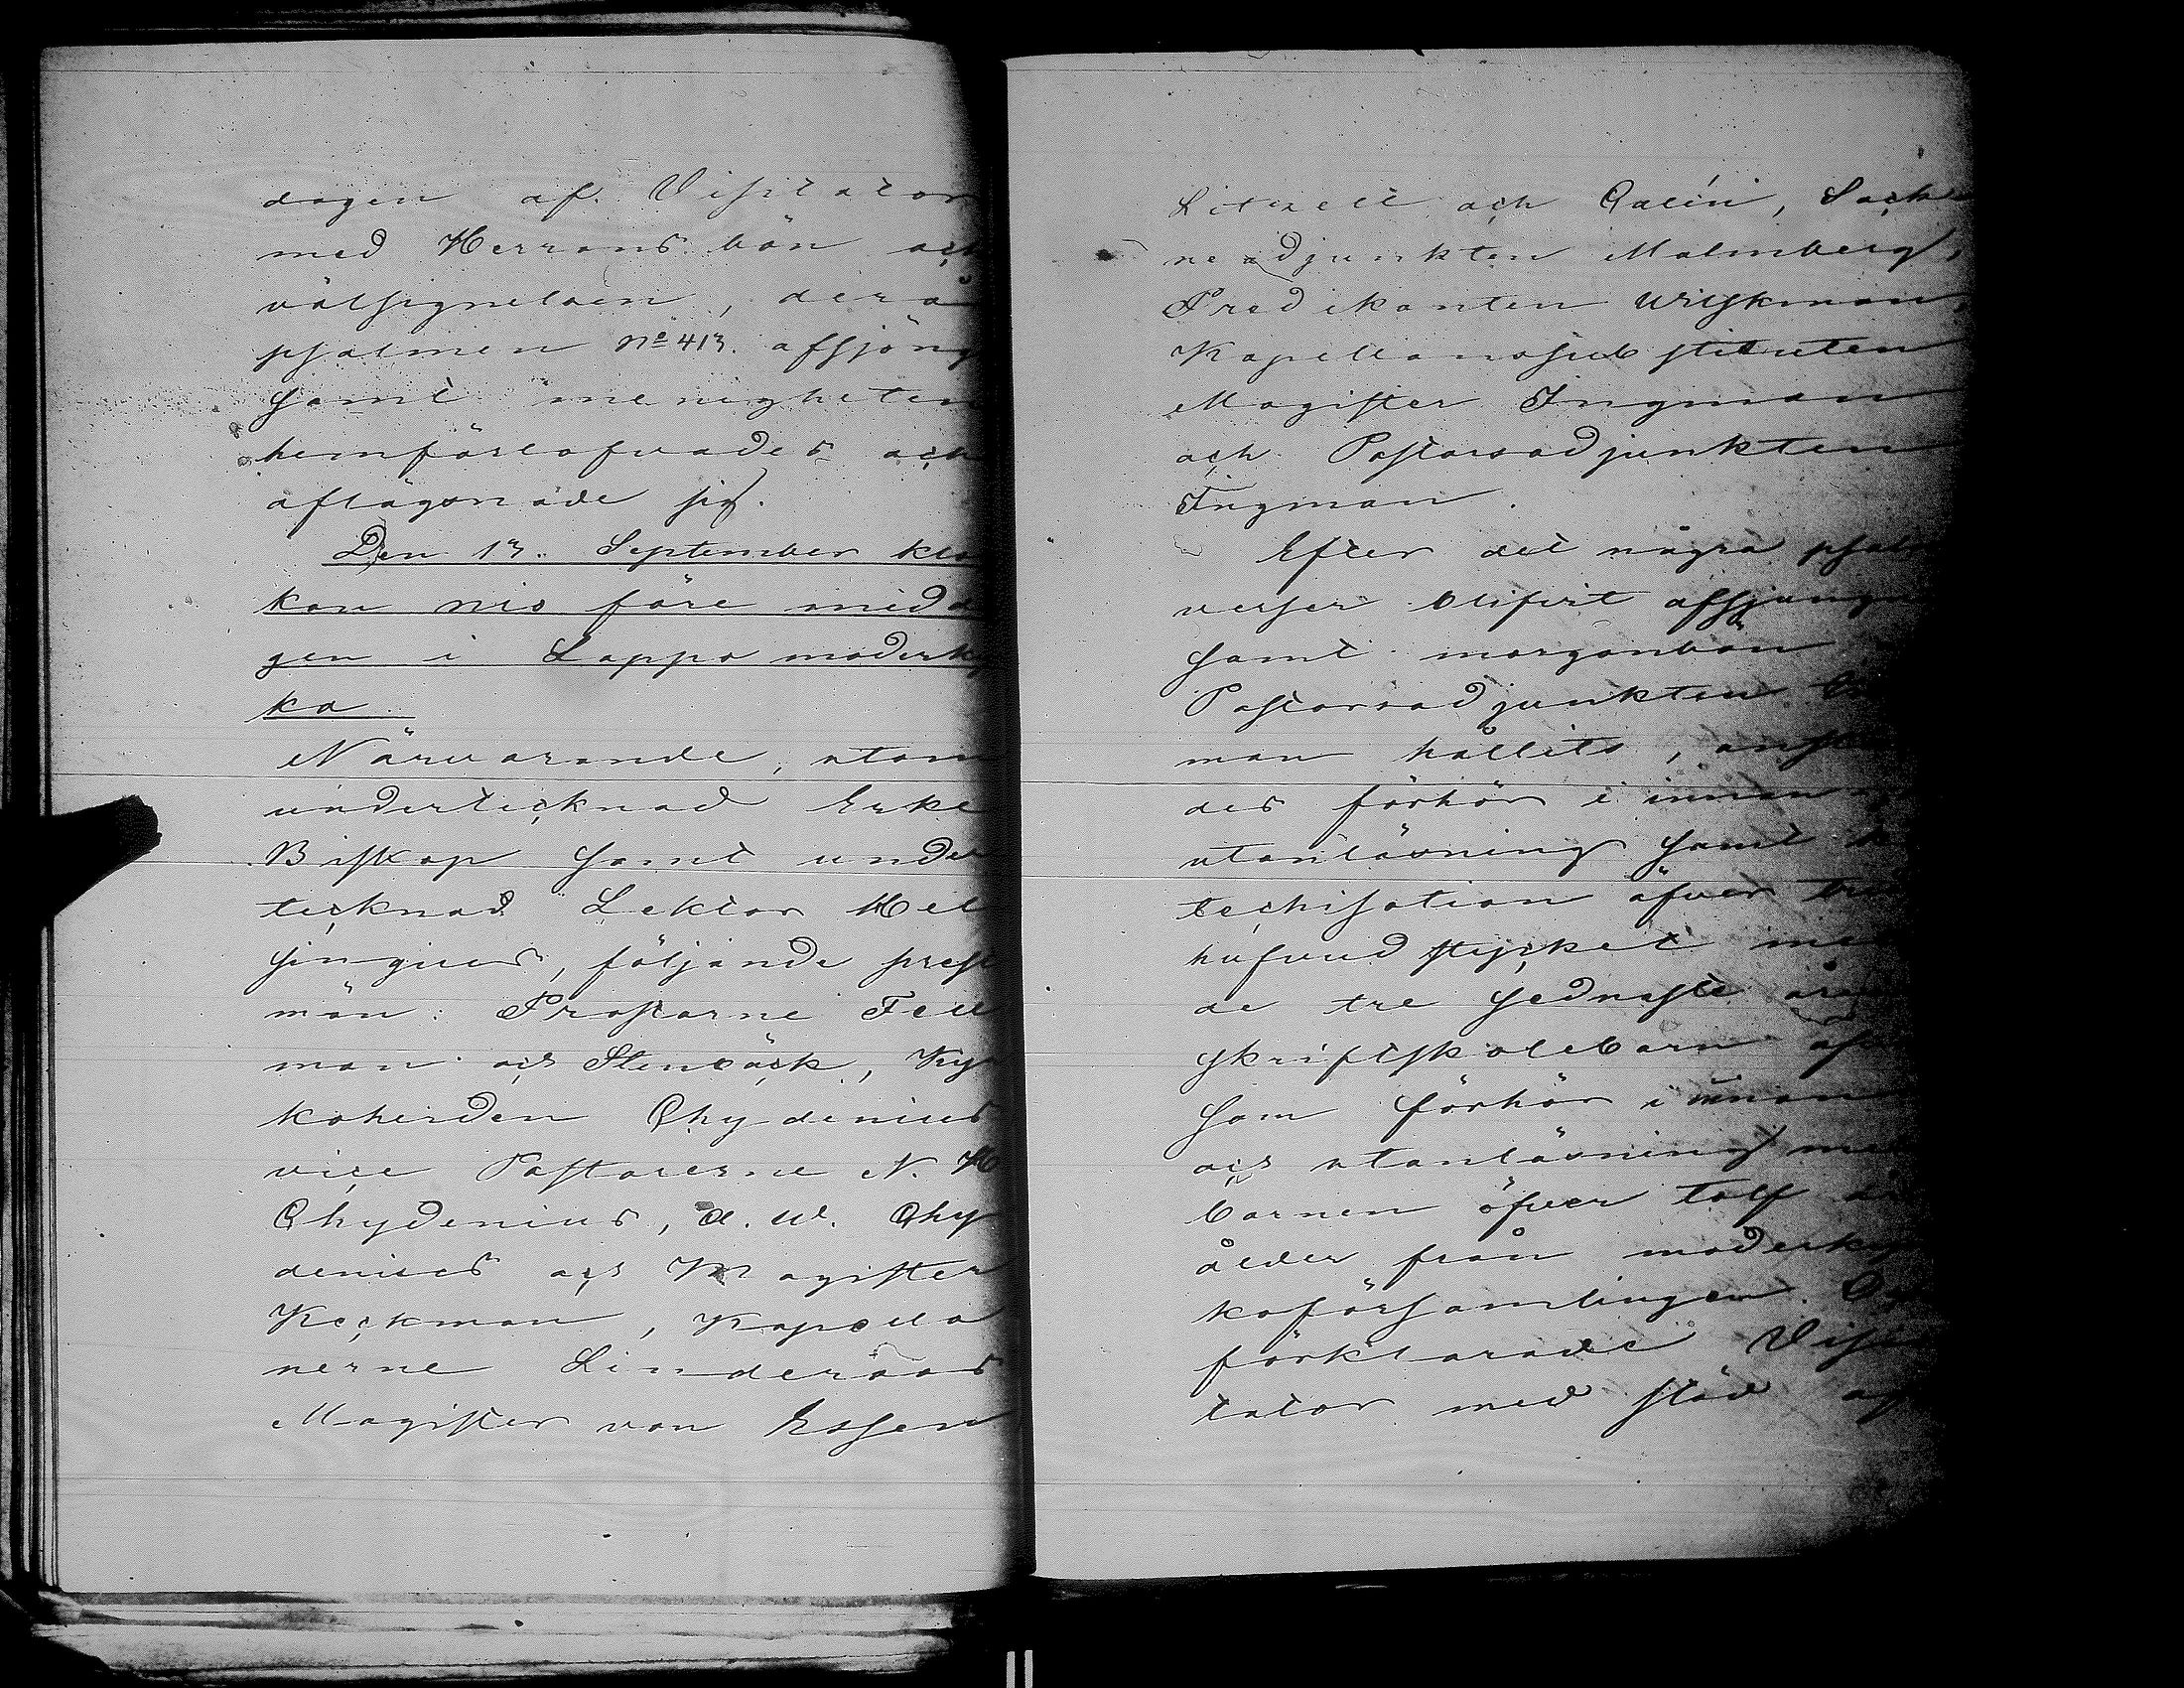 dagen af Visitator
med Herrans bön och
välsignelsen, derå
psalmen No 413. afsjöng
samt menigheten
hemförlofvades och
aflägsnade sig.
Den 13. September kloc
kan nio före midda
gen i Lappo moderkyr
ka.
Närvarande, utom
undertecknad Erke
Biskop samt under
tecknad Lektor Hel
singius, följande prest
män: Prostarne Fell
man och Stenbäck, Kyr
koherden Chydenius
vice Pastorerne N. H
Chydenius, A. W. Chy
denius och Magister
Keckman, Kapella
nerne Linderoos
Magister von Essen
Litzell och Calén, Sock
neadjunkten Malmberg,
Predikanten Wilskman,
Kapellanssubstituten
Magister Ingman
och Pastorsadjunkten
Ingman.
Efter det några psalm
verser blifvit afsjungna
samt morgonbön
Pastorsadjunkten
man hållits, anstäl
des förhör i innan
utanläsning samt
techisation öfver
hufvudstycket med
de tre sednaste åren
skriftskolebarn
som förhör i innan
och utanläsning med
barnen öfver tolf års
ålder från moderkyr
koförsamlingen.
förklarade Visi
tator med stöd af